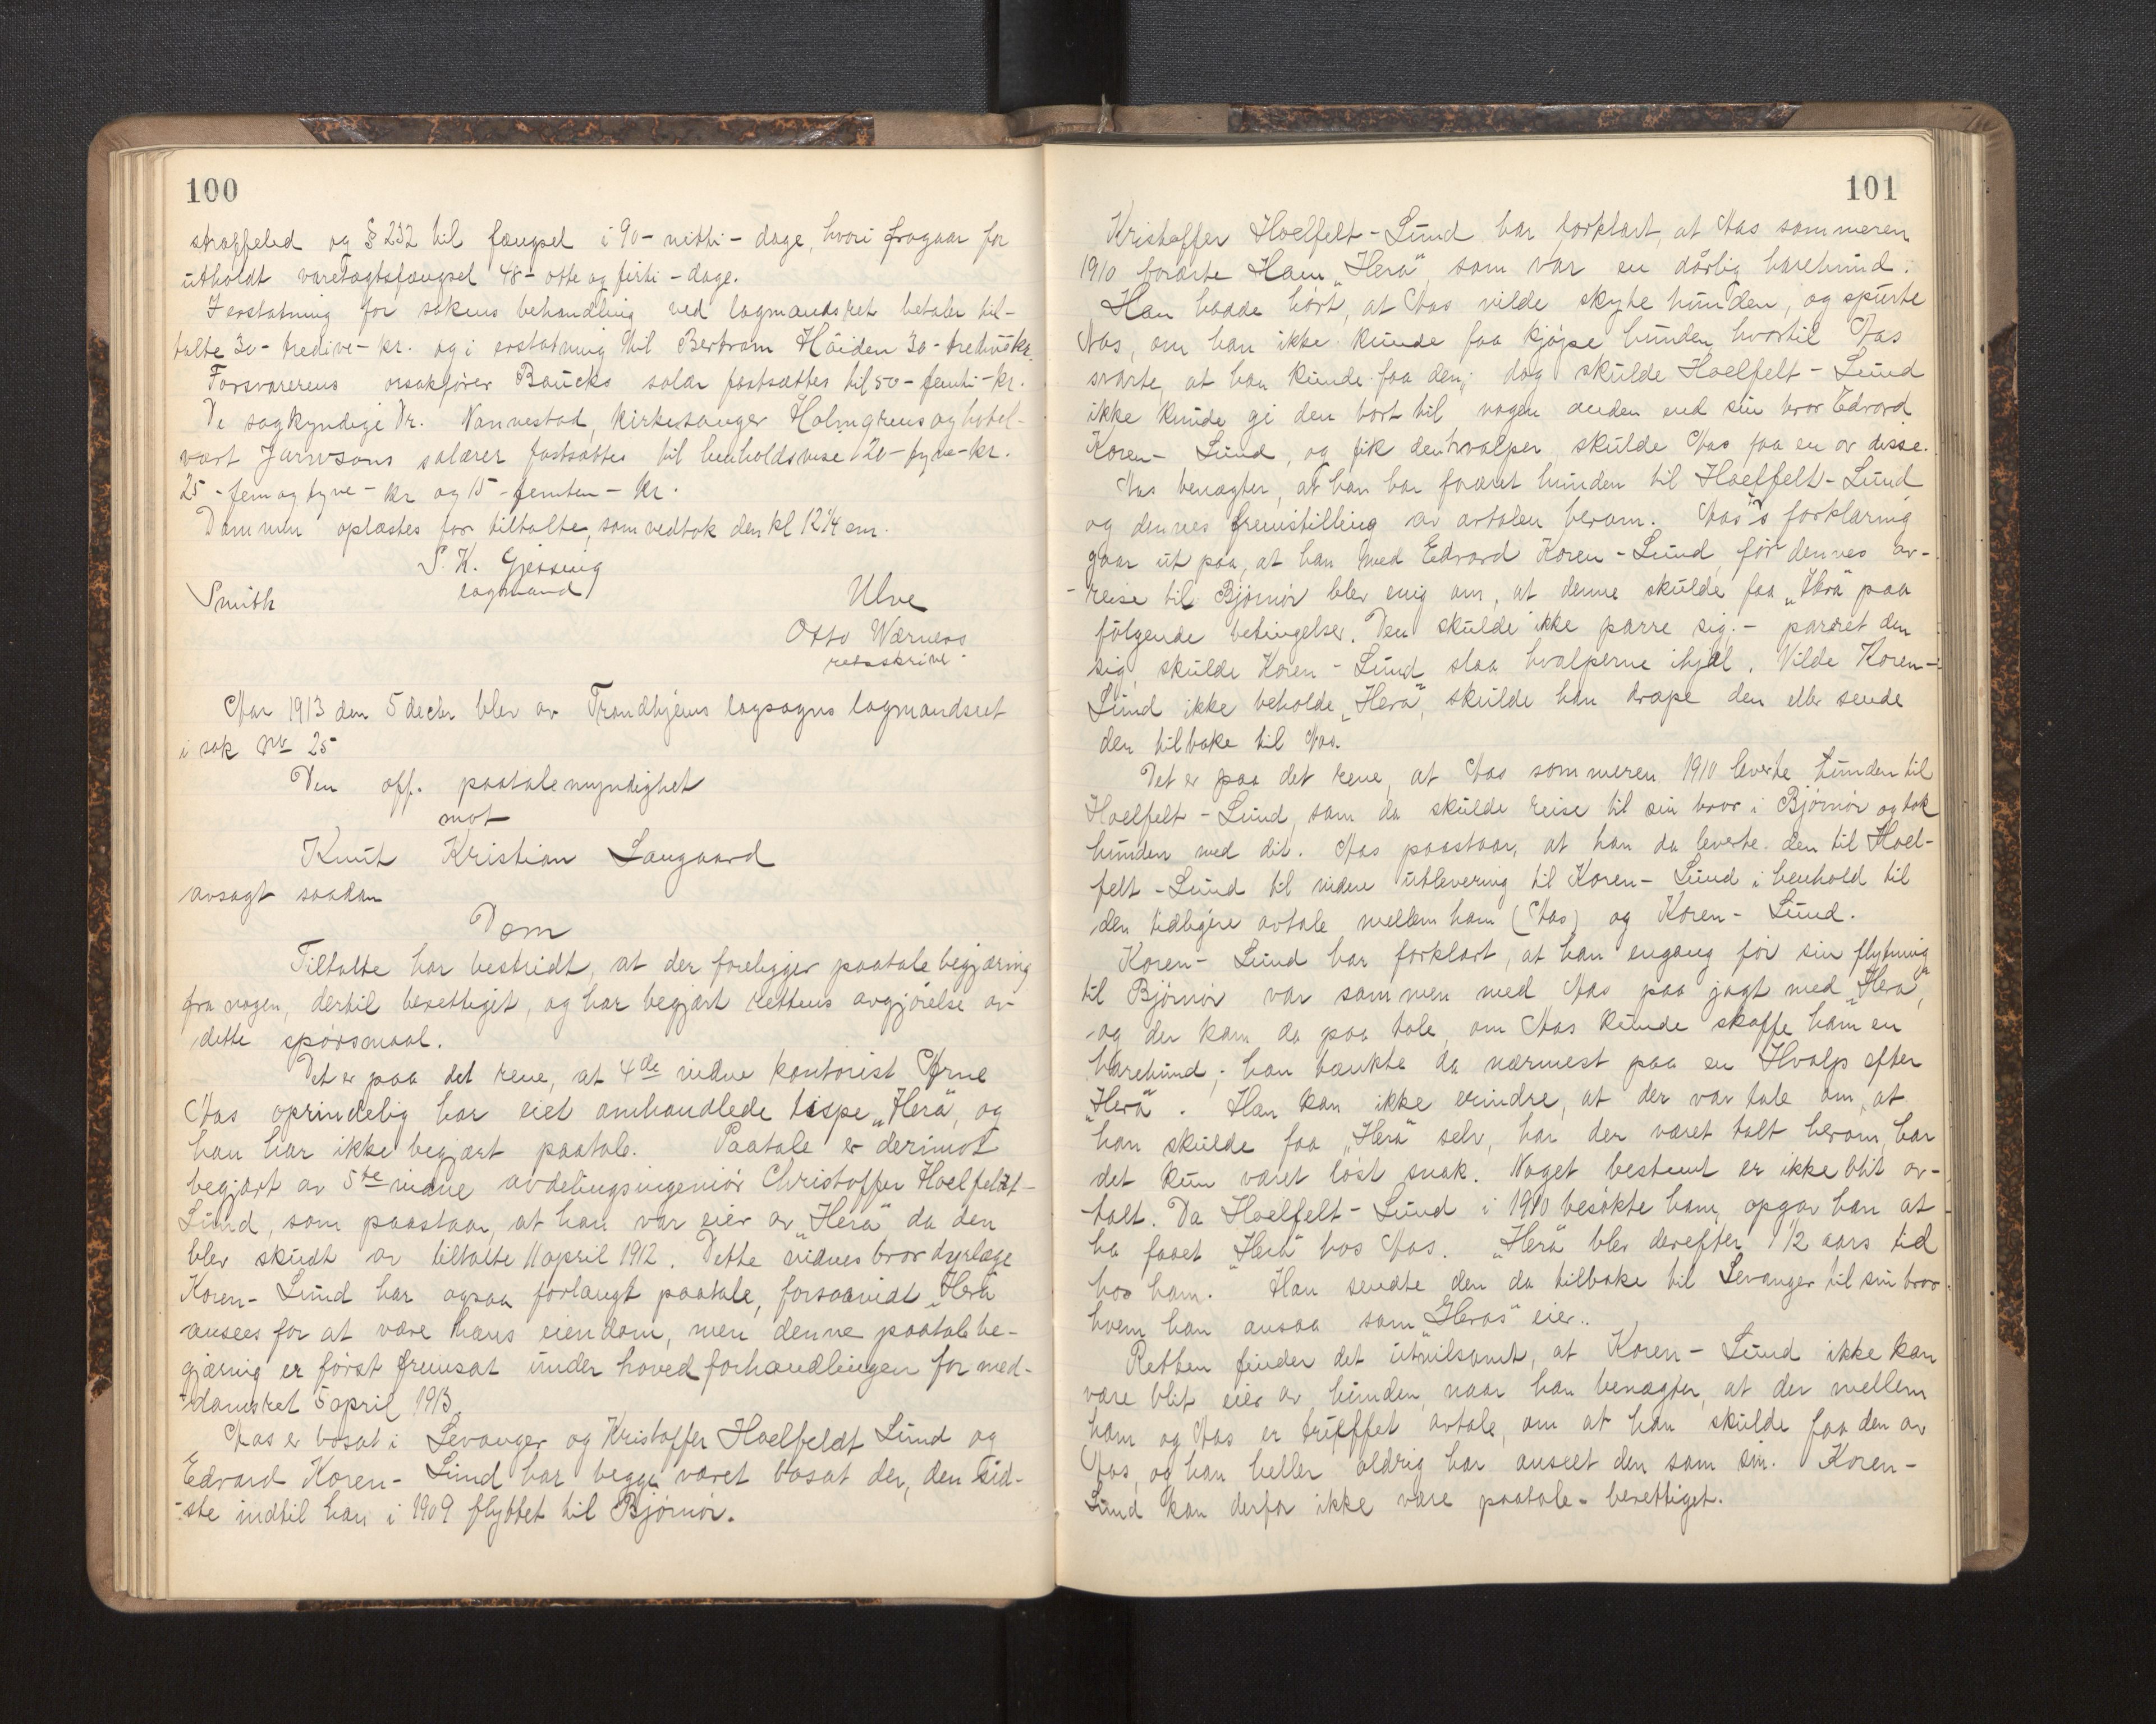 100
straffeled og § 232 til fængsel i 90 - nitti - dage, hvori fragaar for
utholdt varetægtsfængsel 48 - otte og førti - dage.
I erstatning for sakens behandling ved lagmandsret betaler til-
talte 30 - tredive - kr. og i erstatning til Bertram Høiden 30 - tredive kr.
Forsvarerens orsakfører Baucks salær fastsættes til 50 - femti - kr.
De sagkyndige Dr. Nannestad, kirkesanger Holmgrens og hotel-
vært Jarwsons salærer fastsættes til henholdsvise 20 - tyve - kr.
25 - fem og tyve - kr og 15 - femten - kr.
Dommen oplæstes for tiltalte, som vedtok den kl 12 1/4 em.
S. K. Gjessing
lagmand
Smith
Ulve
Otto Wærness
retsskriver.
Aar 1913 den 5 decbr blev av Trondhjems lagsogns lagmandsret
i sak Nr 25
Den off. paatalemyndighet
mot
Knut Kristian Langaard
avsagt saadan
Dom
Tiltalte har bestridt, at der foreligger paatalebegjæring
fra nogen, dertil berettiget, og har begjært rettens avgjørelse av
dette spørsmaal.
Det er paa det rene, at 4de vidne kontorist Arne
Aas oprindelig har eiet omhandlede tispe "Hera", og
han har ikke begjært paatale. Paatale er derimot
begjært av 5te vidne avdelingsingeniør Christoffer Hoelfeldt-
Lund, som paastaar, at han var eier av "Hera" da den
blev skudt av tiltalte 11 april 1912. Dette vidnes bror dyrlæge
Koren-Lund har ogsaa forlangt paatale, forsaavidt "Hera"
ansees for at være hans eiendom, men denne paatalebe-
gjæring er først fremsat under hovedforhandlingen for med-
domsret 5 april 1913.
Aas er bosat i Levanger og Kristoffer Hoelfeldt Lund og
Edvard Koren-Lund har begge været bosat der, den sid-
ste indtil han i 1909 flyttet til Bjørnør.
101
Kristoffer Hoelfelt-Lund har forklart, at Aas sommeren
1910 forærte Ham "Hera", som var en dårlig harehund.
Han hadde hørt, at Aas vilde skyte hunden, og spurte
Aas, om han ikke kunde faa kjøpe hunden, hvortil Aas
svarte, at han kunde faa den; dog skulde Hoelfelt-Lund
ikke kunde gi den bort til nogen anden end sin bror Edvard
Koren-Lund, og fik den hvalper skulde Aas faa en av disse.
Aas benægter, at han har foræret hunden til Hoelfelt-Lund
og dennes fremstilling av avtalen herom. Aas's forklaring
gaar ut paa, at han med Edvard Koren-Lund før dennes av-
reise til Bjørnør blev enig om, at denne skulde faa "Hera" paa
følgende betingelser. Den skulde ikke parre sig. - parret den
sig, skulde Koren-Lund slaa hvalperne ihjel. Vilde Koren-
Lund ikke beholde "Hera", skulde han dræpe den eller sende
den tilbake til Aas.
Det er paa det rene, at Aas sommeren 1910 leverte hunden til
Hoelfelt-Lund, som da skulde reise til sin bror i Bjørnør og tok
hunden med dit. Aas paastaar, at han da leverte den til Hoel-
felt-Lund til videre utlevering til Koren-Lund i henhold til
den tidligere avtale mellem ham (Aas) og Koren-Lund.
Koren-Lund har forklart, at han engang før sin flytning
til Bjørnør var sammen med Aas paa jagt med "Hera",
og der kom da paa tale, om Aas kunde skaffe ham en
harehund; han tænkte da nærmest paa en Hvalp efter
"Hera". Han kan ikke erindre, at der var tale om, at
han skulde faa "Hera" selv, har der været talt herom, har
det kun været løst snak. Noget bestemt er ikke blit av-
talt. Da Hoelfelt-Lund i 1910 besøkte ham, opgav han at
ha faaet "Hera" hos Aas. "Hera" blev derefter 1 1/2 aars tid
hos ham. Han sendte den da tilbake til Levanger til sin bror
hvem han ansaa som "Heras" eier.
Retten finder det utvilsomt, at Koren-Lund ikke kan
være blit eier av hunden, naar han benægter, at der mellem
ham og Aas er truffet avtale, om at han skulde faa den av
Aas, og han heller aldrig har anseet den som sin. Koren-
Lund kan derfor ikke være paatale-berettiget.